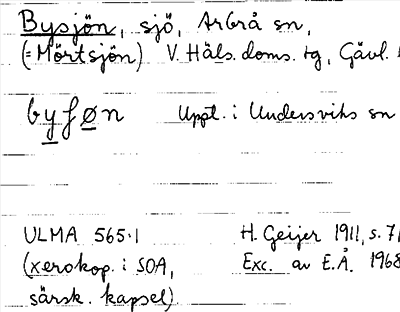 Bysjön, sjö, Arbrå sn,
(=Mörtsjön) V. Häls. doms. tg, Gävl.
byʃøn Uppt. i Undersviks sn
ULMA 565:1 H. Geijer 1911, s. 71
(xerokop. i SOA, Exc. av E.Å. 1968
särsk. kapsel)